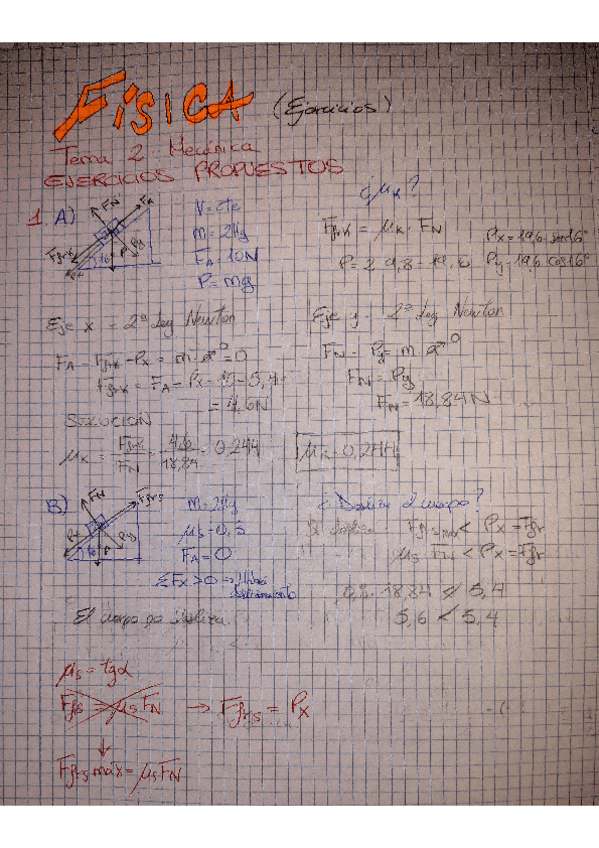 FÍSICA (Ejercicios)
Tema 2 Mecánica
EJERCICIOS PROPUESTOS
¿μk?
1. A)
FN FA
Ffrk Px P Py 16°
V = cte
m = 2Kg
FA = 10N
P = mg
Ffrk = μk · FN
P = 2 · 9,8 = 19,6
Px = 19,6 · sen16°
Py = 19,6 cos16°
Eje x = 2ª ley Newton
FA - Ffrk - Px = m · a = 0
Ffrk = FA - Px = 10 - 5,4 =
= 4,6N
Eje y = 2ª ley Newton
FN - Py = m · a 0
FN = Py
FN = 18,84N
SOLUCIÓN
μk = Ffrk / FN = 4,6 / 18,84 = 0,244
μk = 0,244
B)
FN Ffrs
Px 16° P Py
m = 2Kg
μs = 0,3
FA = 0
ΣFx > 0 => Habrá
deslizamiento
¿Desliza el cuerpo?
Si desliza Ffrsmax < Px = Ffr
μs FN < Px = Ffr
0,3 · 18,84 < 5,4
5,6 < 5,4
El cuerpo no desliza
μs = tgα
Ffrs = μs FN → Ffrs = Px
↓
Ffrs max = μs FN